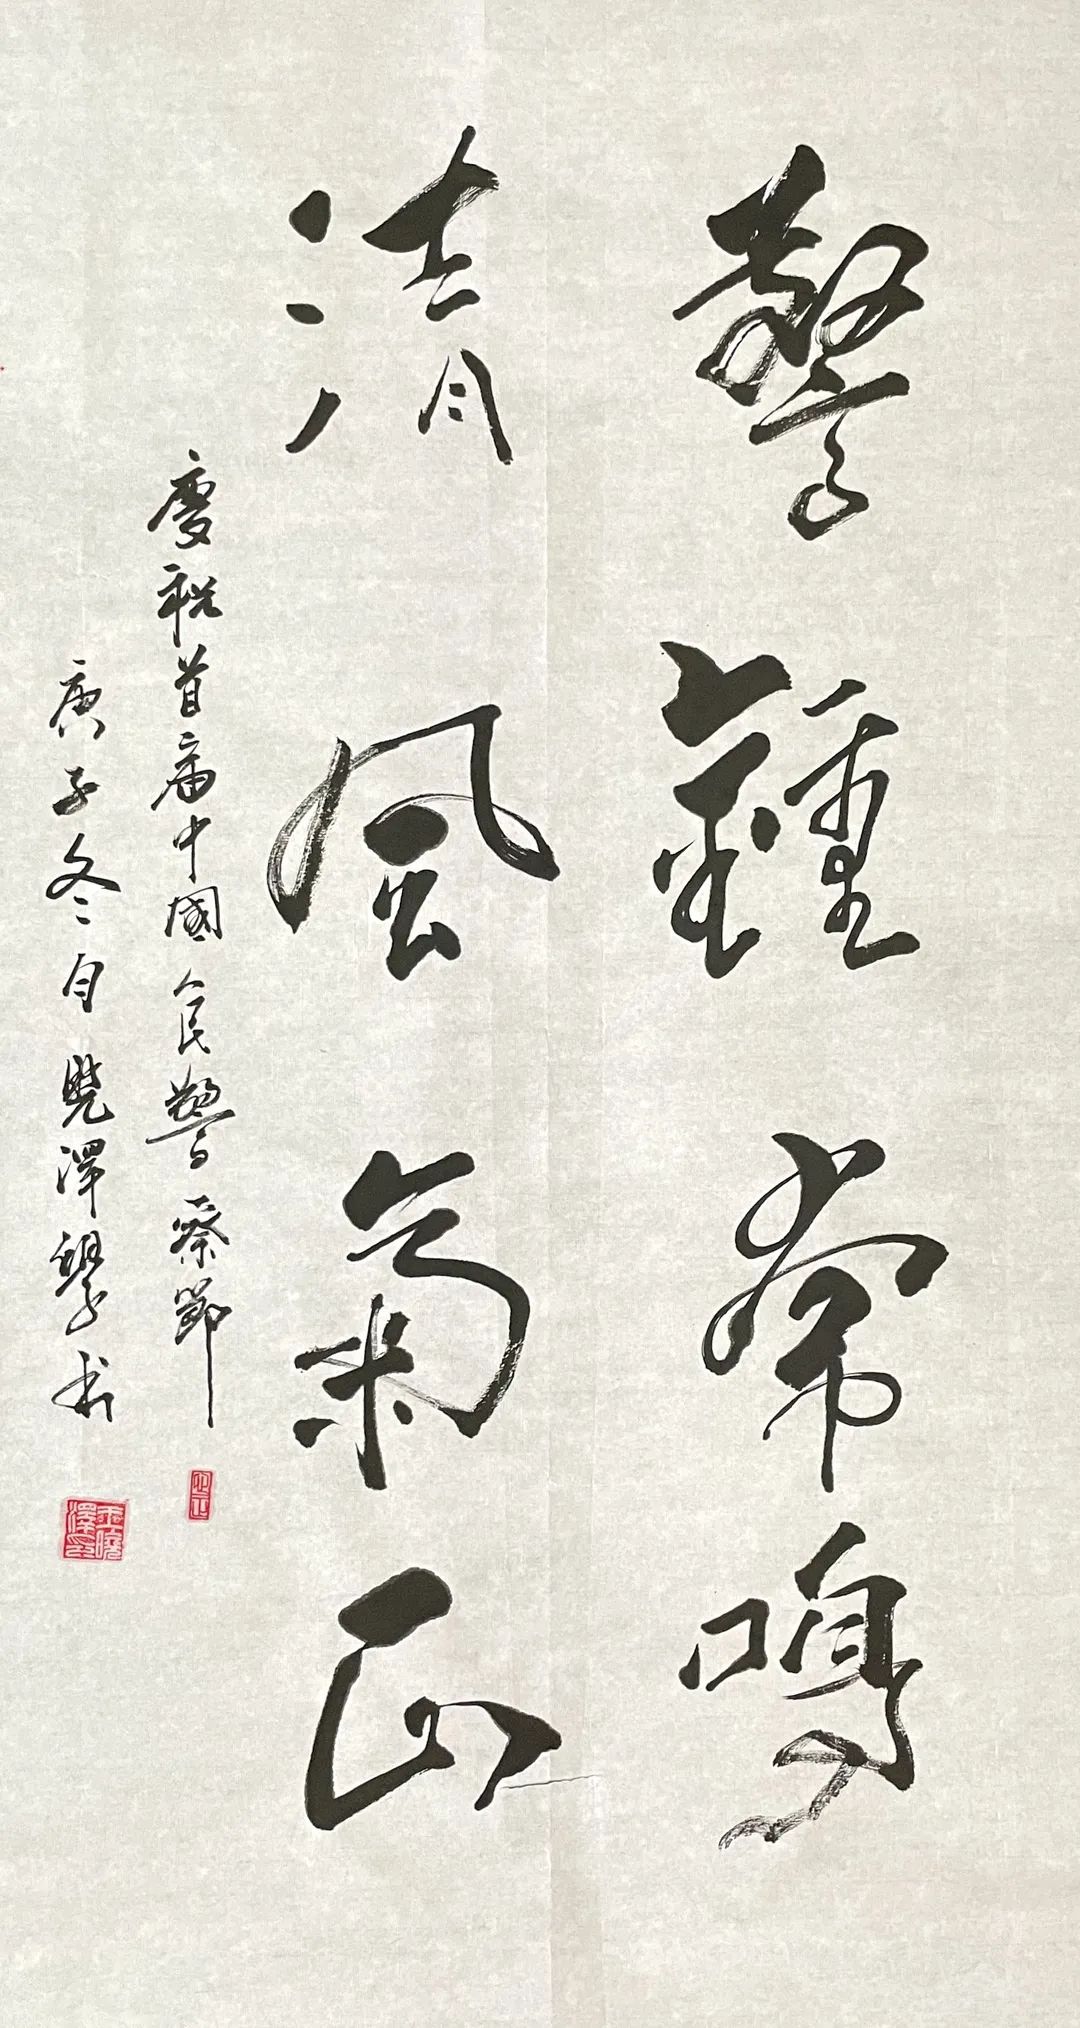 警鐘常鳴
清風氣正
慶祝首屆中國人民警察節
庚子冬月曉澤學書
王曉澤印